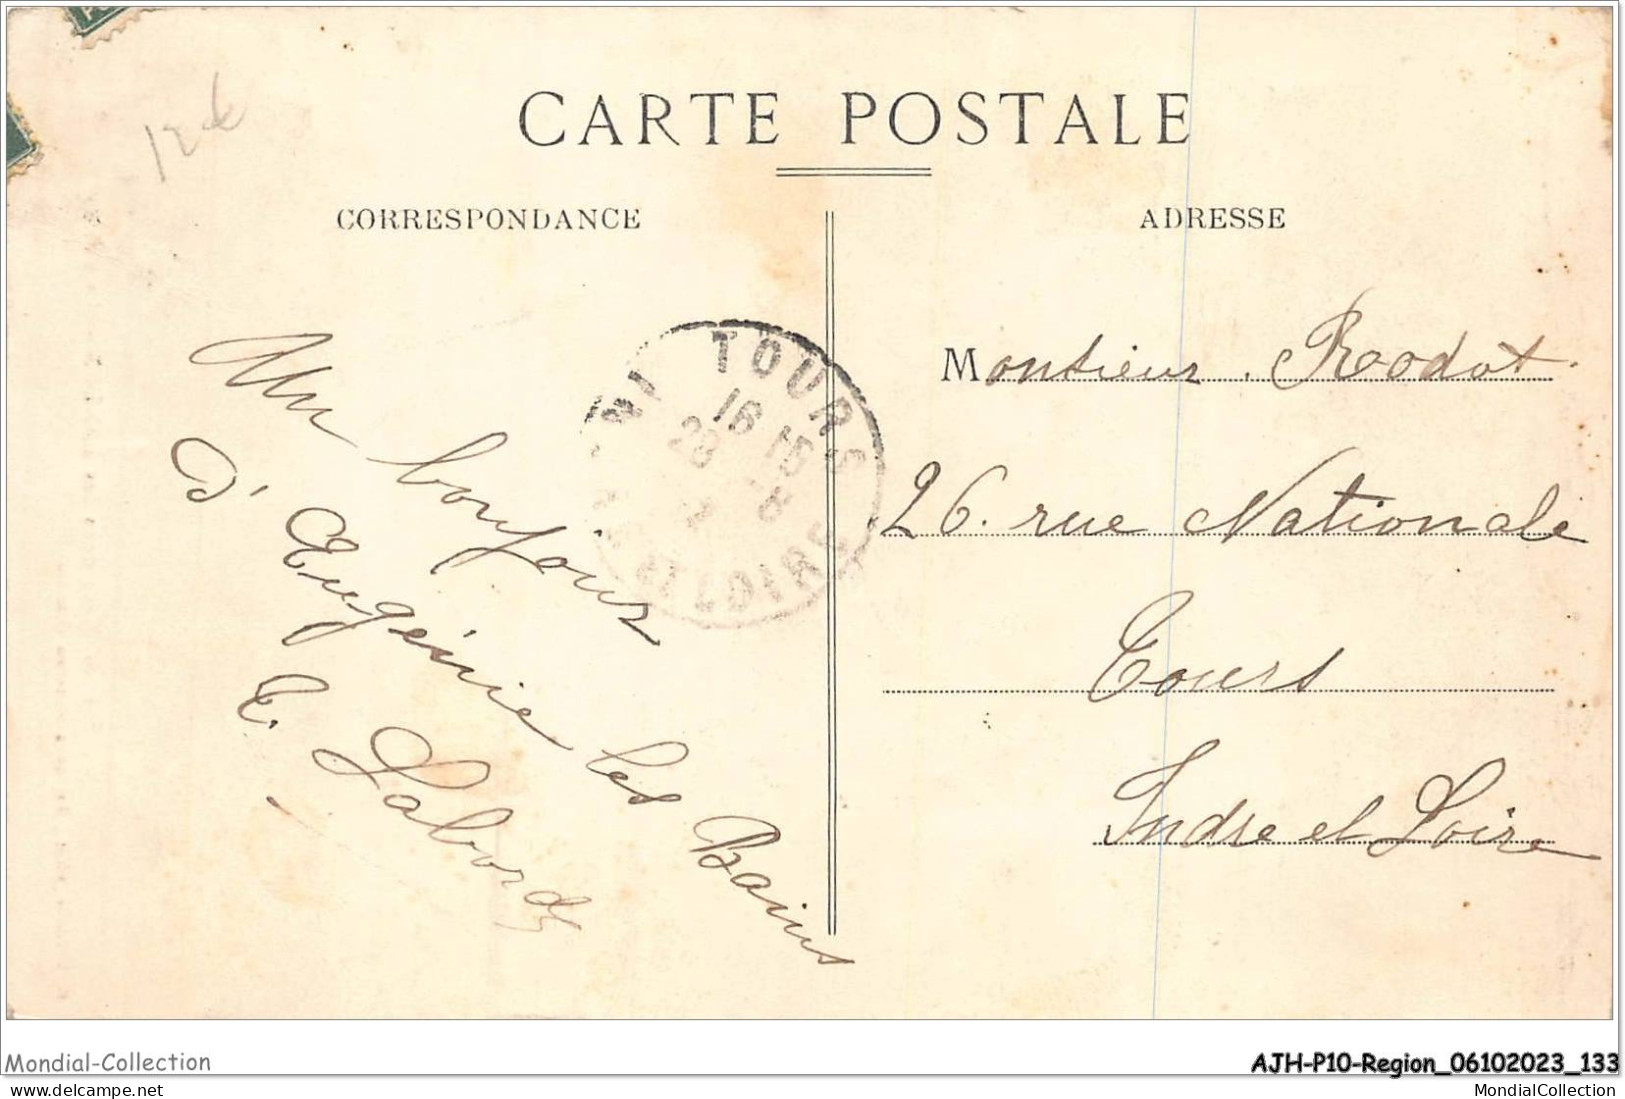 12€
CARTE POSTALE
CORRESPONDANCE
ADRESSE
Un bonjour
d'Eugénie les Bains
E. Laborde
TOURS
16 15
28 8
INDRE ET LOIRE
Monsieur Rodot
26. rue Nationale
Tours
Indre et Loire
Mondial-Collection
AJH-P10-Region_06102023_133
MondialCollection